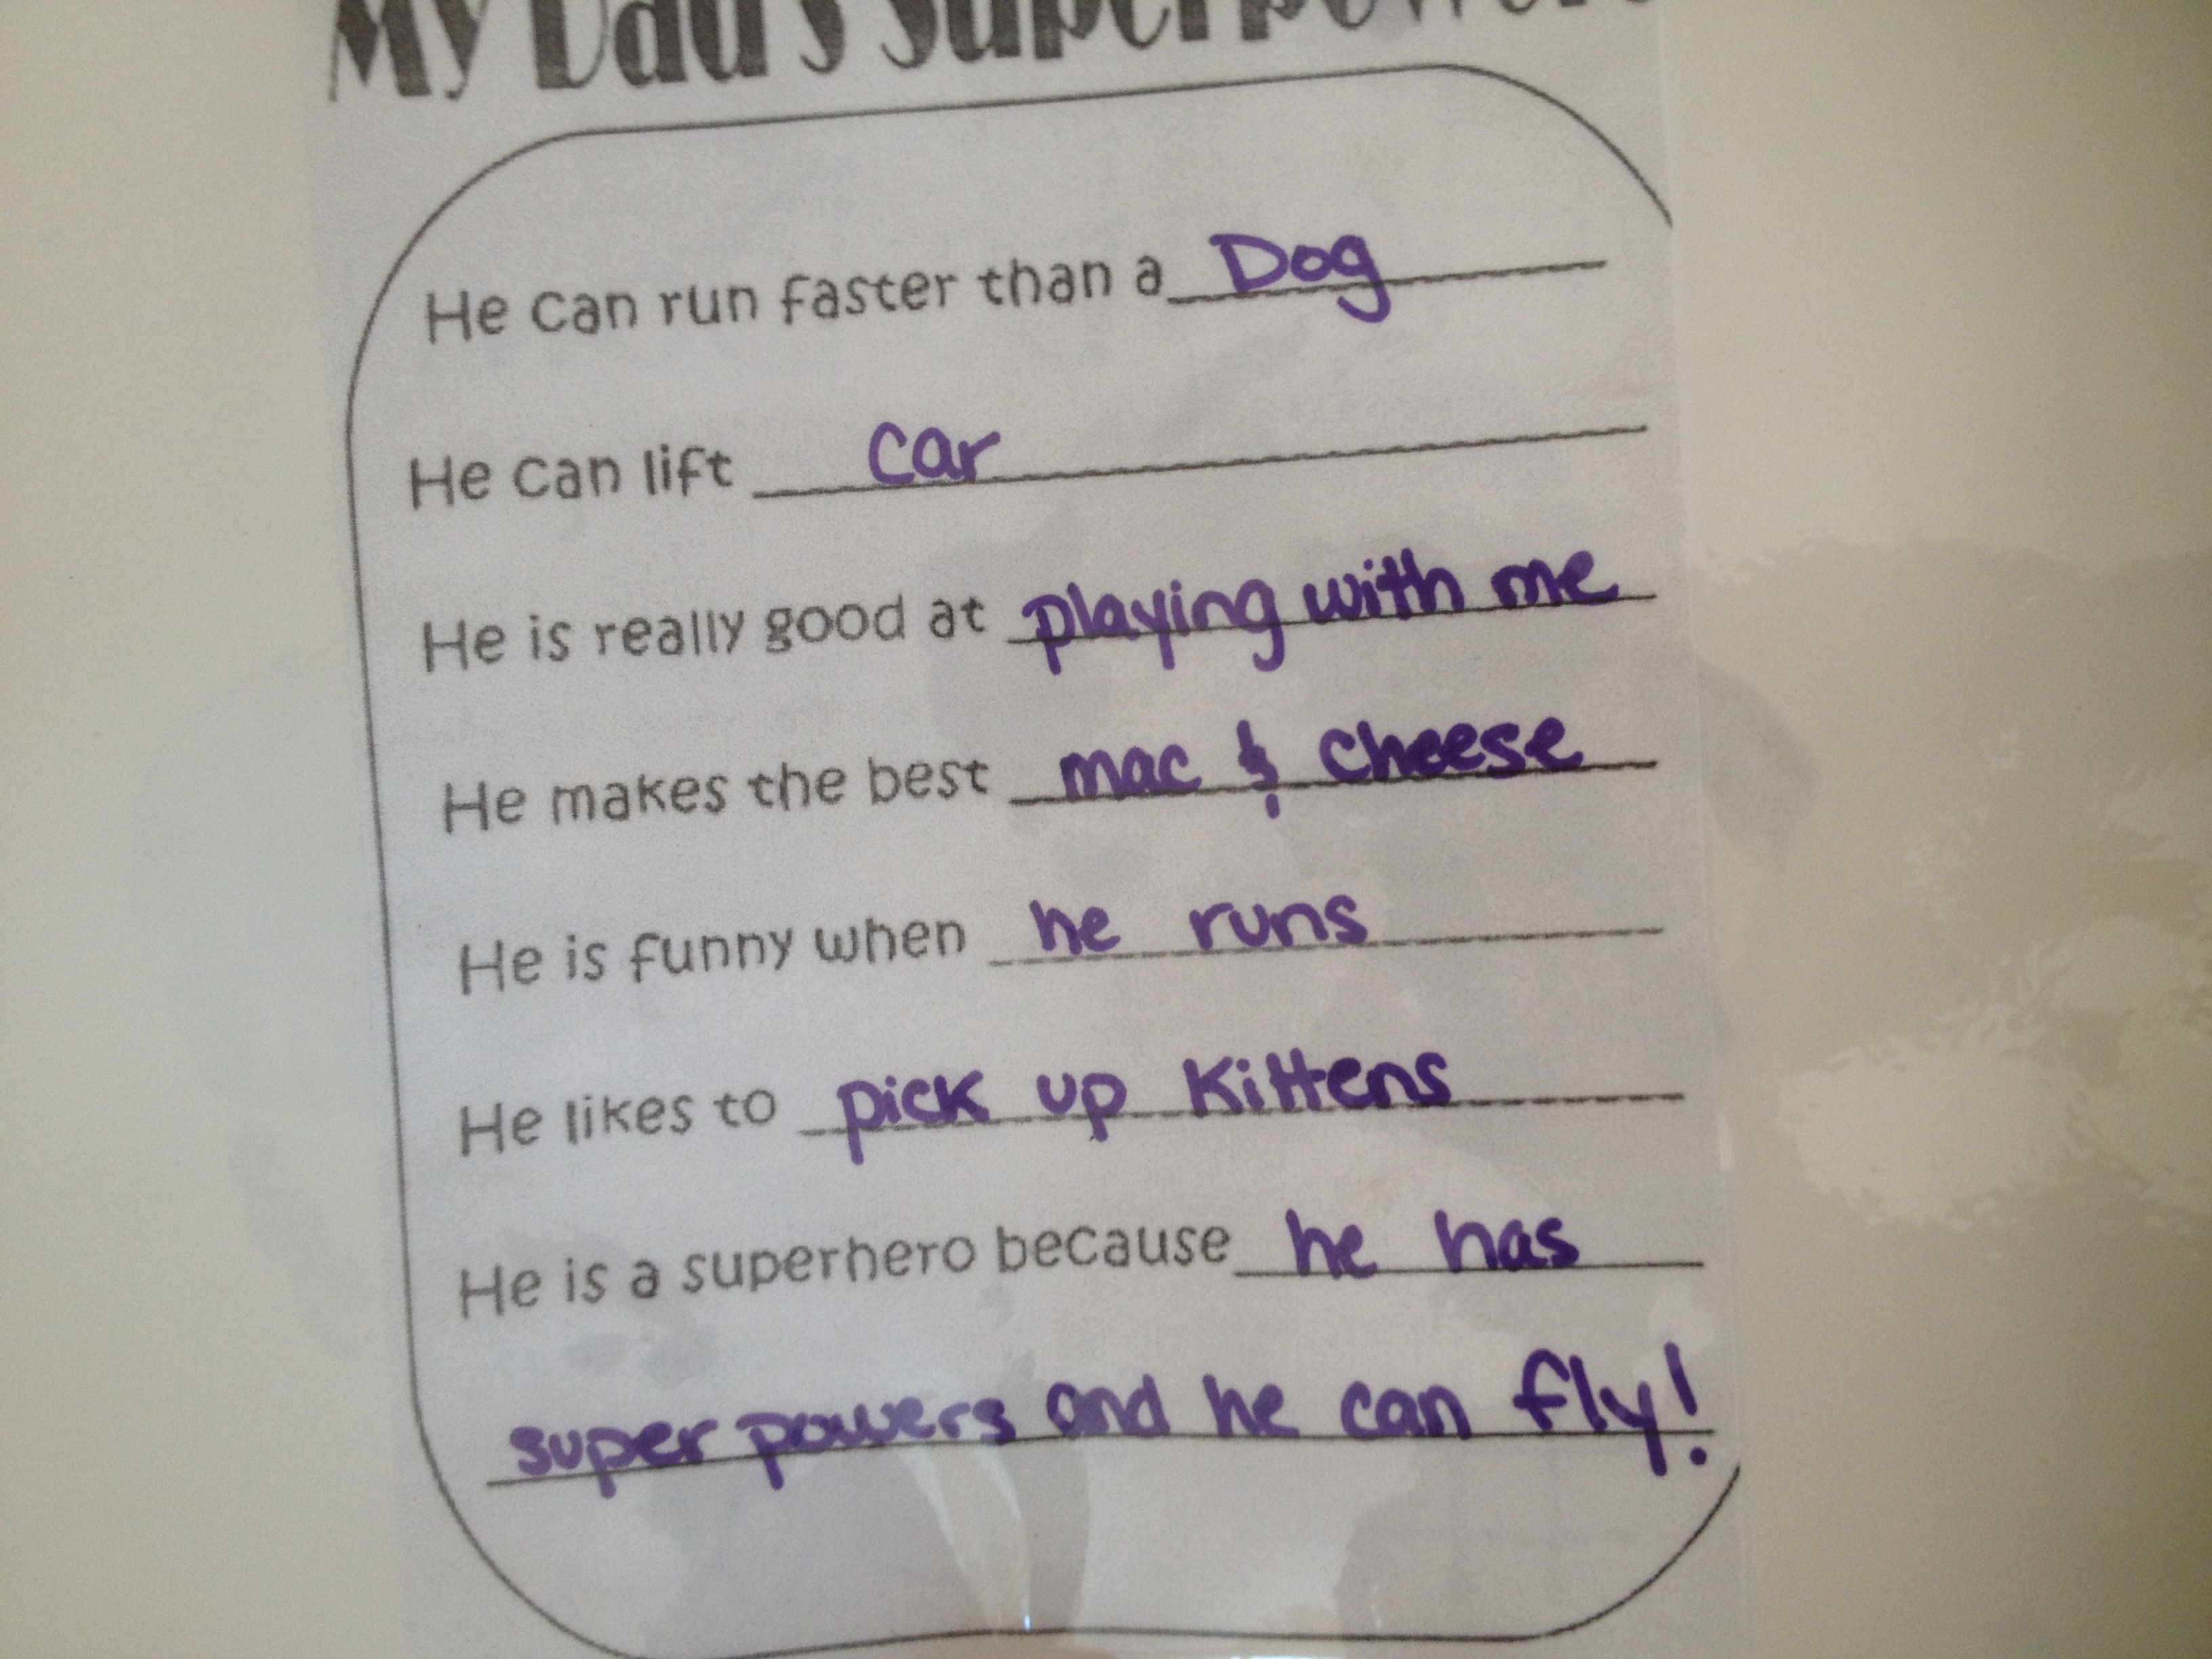 My Dad's Superpowers
He can run faster than a Dog
He can lift car
He is really good at playing with me
He makes the best mac & cheese
He is funny when he runs
He likes to pick up Kittens
He is a superhero because he has
super powers and he can fly!